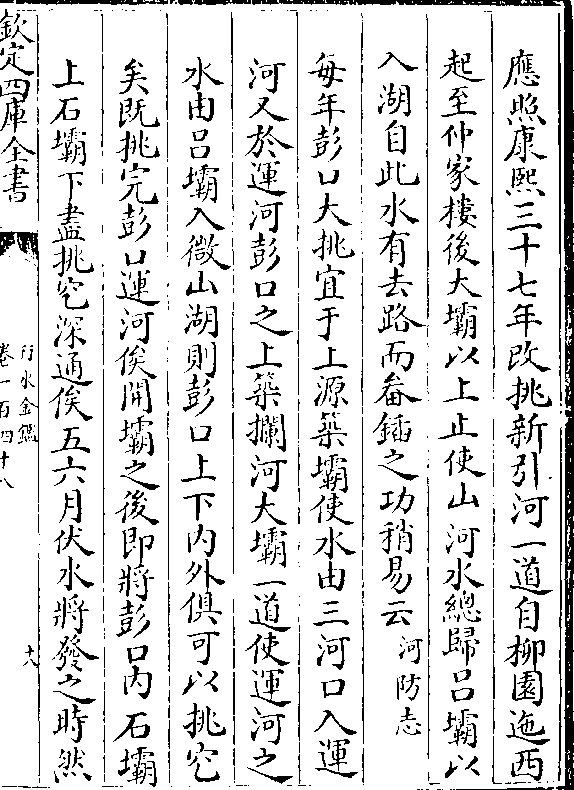 應照康熙三十七年改挑新引河一道自柳園迤西
起至仲家樓後大壩以上止使山河水總歸呂壩以
入湖自此水有去路而畚鍤之功稍易云河防志
每年彭口大挑宜于上源築壩使水由三河口入運
河又於運河彭口之上築攔河大壩一道使運河之
水由呂壩入微山湖則彭口上下內外俱可以挑空
矣既挑完彭口運河俟開壩之後即將彭口內石壩
上石壩下盡挑空深通俟五六月伏水將發之時然
欽定四庫全書
行水金鑑
卷一百四十八
十八